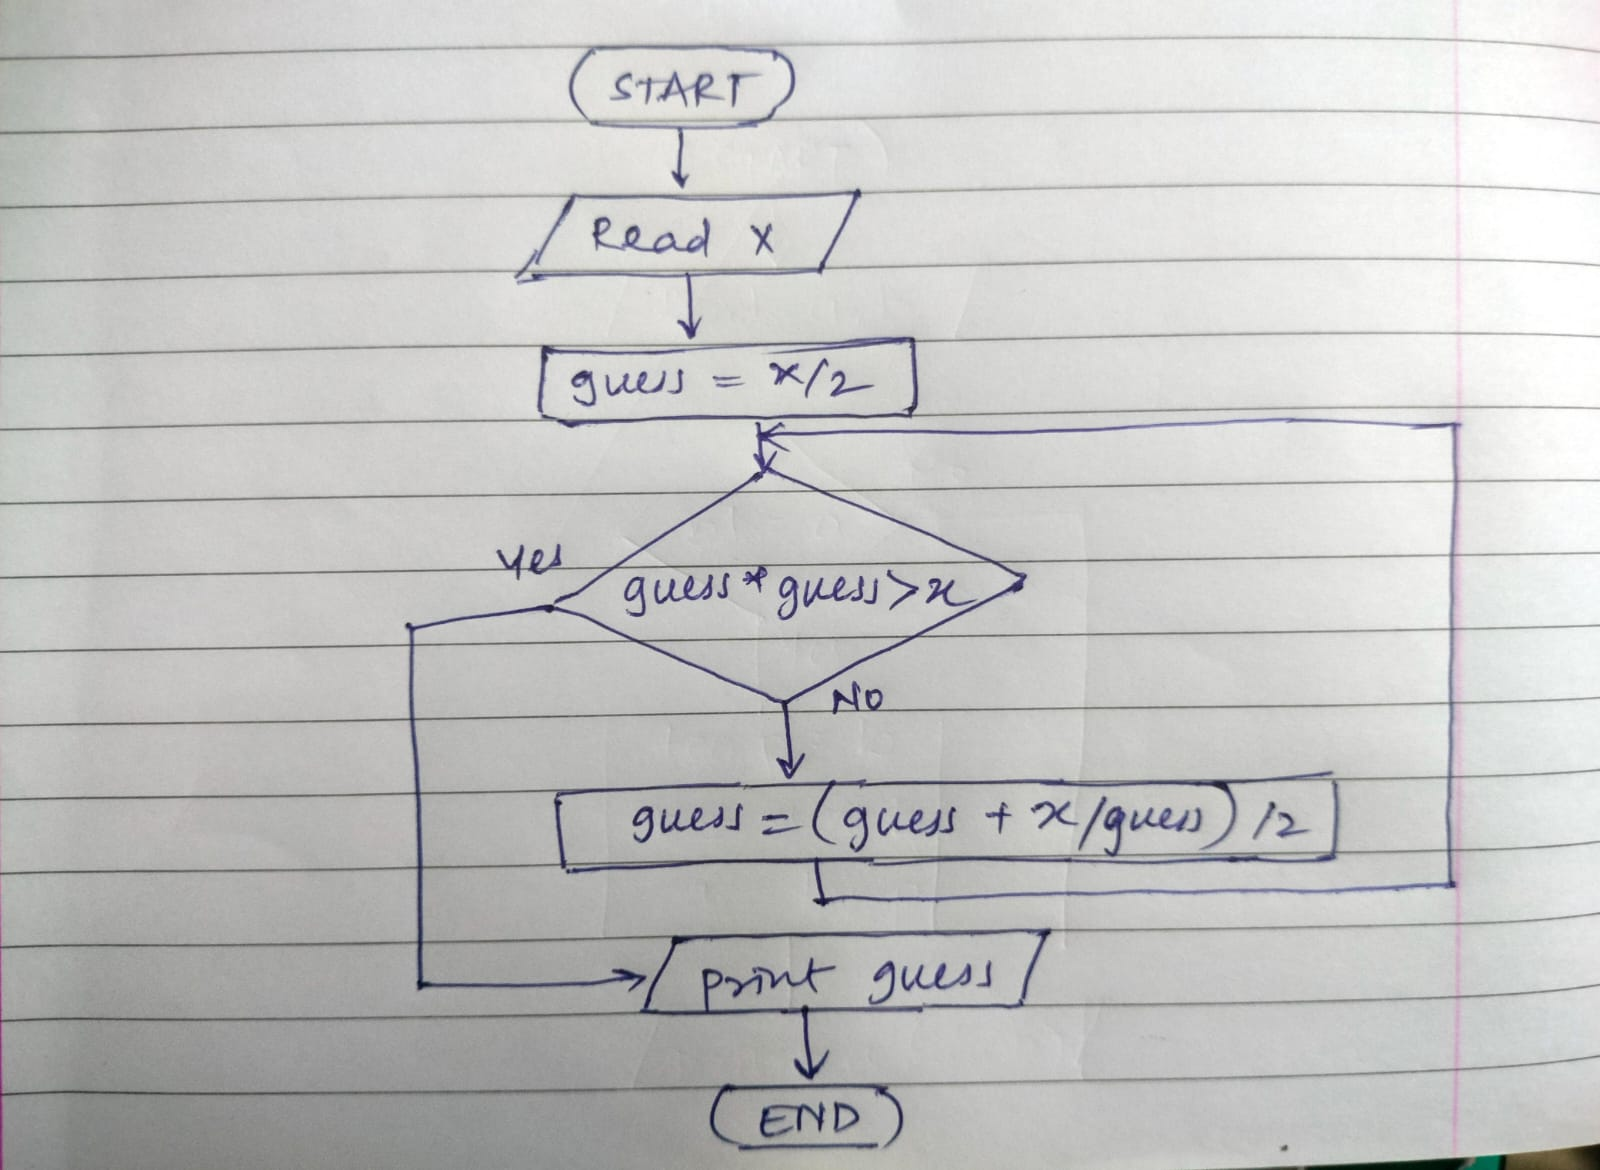 START
Read X
guess = x/2
Yes
guess * guess > x
NO
guess = (guess + x/guess) /2
print guess
END